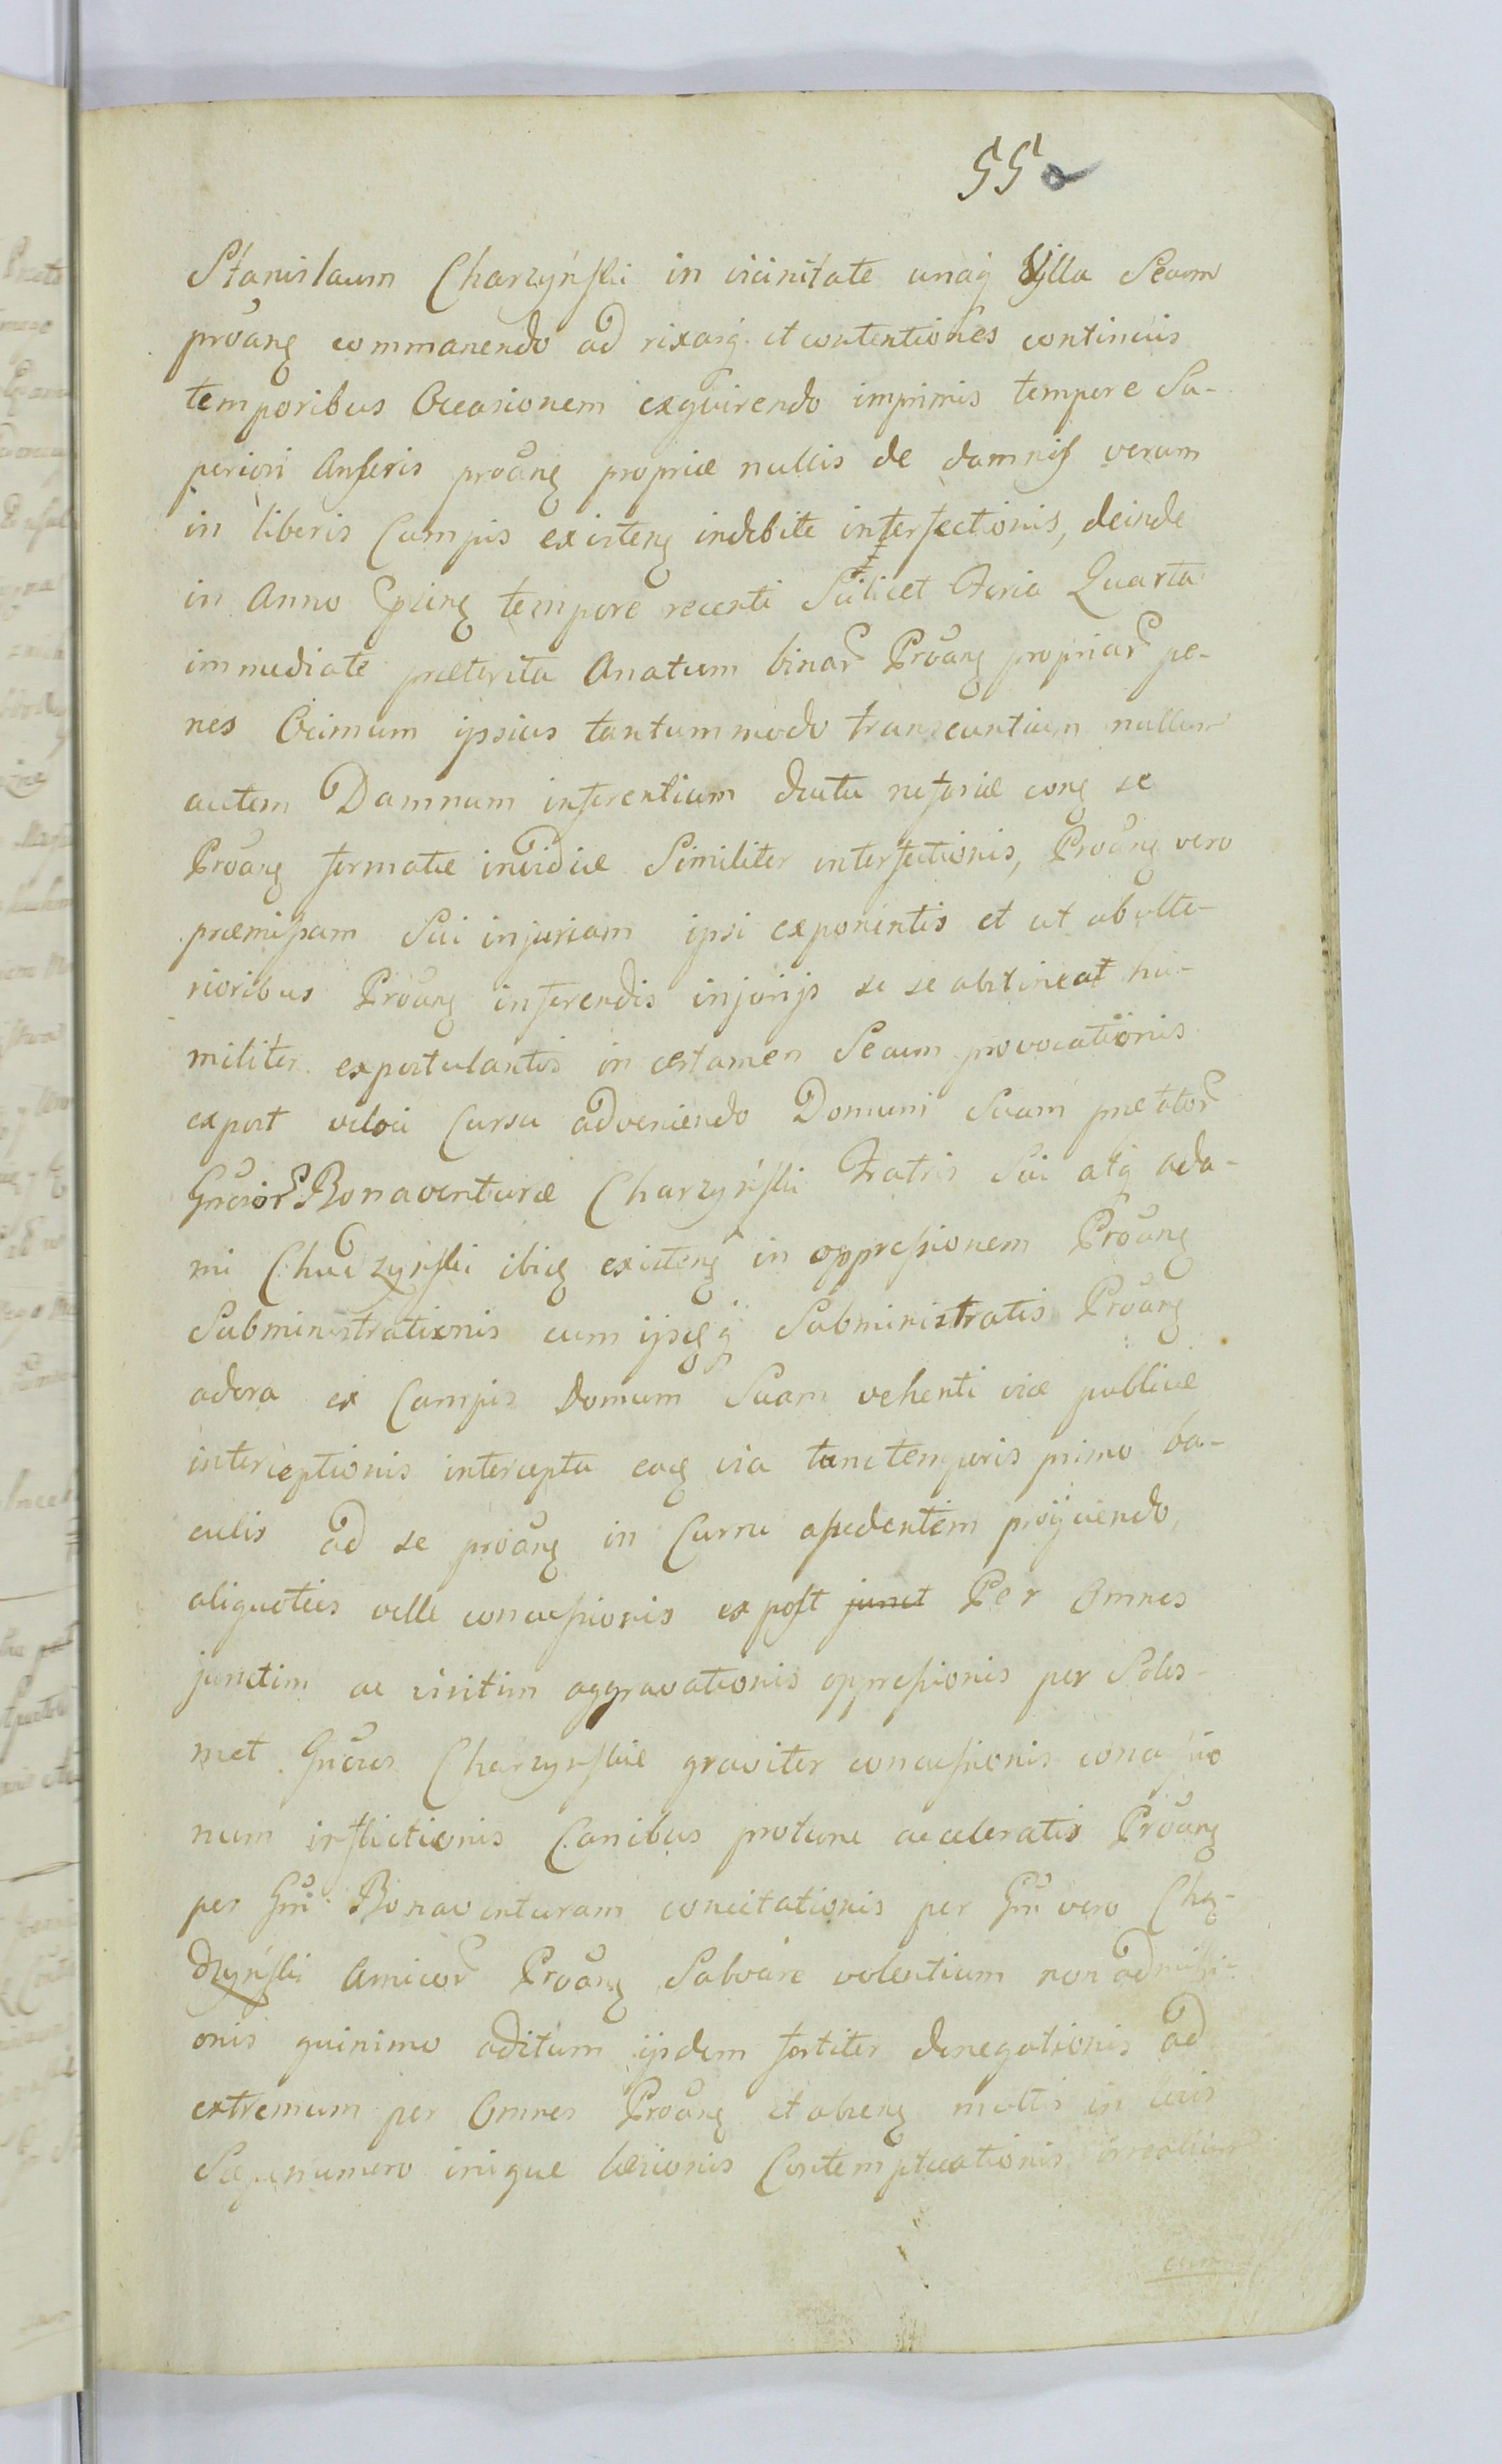 55
Stanislaum Charzyński in vicinitate unaq Villa Secum
proang commanendo ad rixasq et contentiones continuis
temporibus Occasionem exquirendo imprimis tempore Su-
periori Anseris proang propriæ nullis de damnis verum
in liberis Campis existeng indebite interfectionis, deinde
in Anno pnteng tempore recenti Scilicet Feria Quarta
immediate præterita Anatum binar Proang propriar pe-
nes Ocimum ipsius tantummodo transeuntium nullum
autem Damnum inferentium ductu nefariæ cong se
Proang formatæ invidiæ Similiter interfectionis, Proang vero
præmissam Sui injuriam ipsi exponentis et ut ab ulte-
rioribus Proang inferendis injurijs se se abstineat hu-
militer expostulantis in certamen Secum provocationis
expost veloci Cursu adveniendo Domum Suam præfator
Gnror Bonaventuræ Charzyński Fratris Sui atq Ada-
mi Chudzyński ibiq existeng in oppressionem Proang
Subministrationis cum ijsqq Subministratis Proang
adora ex Campis Domum Suam vehenti viæ publicæ
interceptionis intercepta eaq via tunc temporis primo ba-
culis ad se proang in Curru assedentem proijciendo,
aliquoties velle concussionis ex post junct Per Omnes
junctim ac vicitim aggravationis oppressionis per Solos-
met Gnros Charzyńskie graviter concussionis concussio
num inflictionis Canibus protunc acceleratis Proang
per Gnm Bonaventuram concitationis per Gnm vero Chu-
dzyński Amicor Proang Salvare volentium non admissi-
onis quinimo aditum ijsdem fortiter denegationis ad
extremum per Omnes Proang et abseng multis in locis
Sæpenumero inique læsionis Contemptuationis
cum